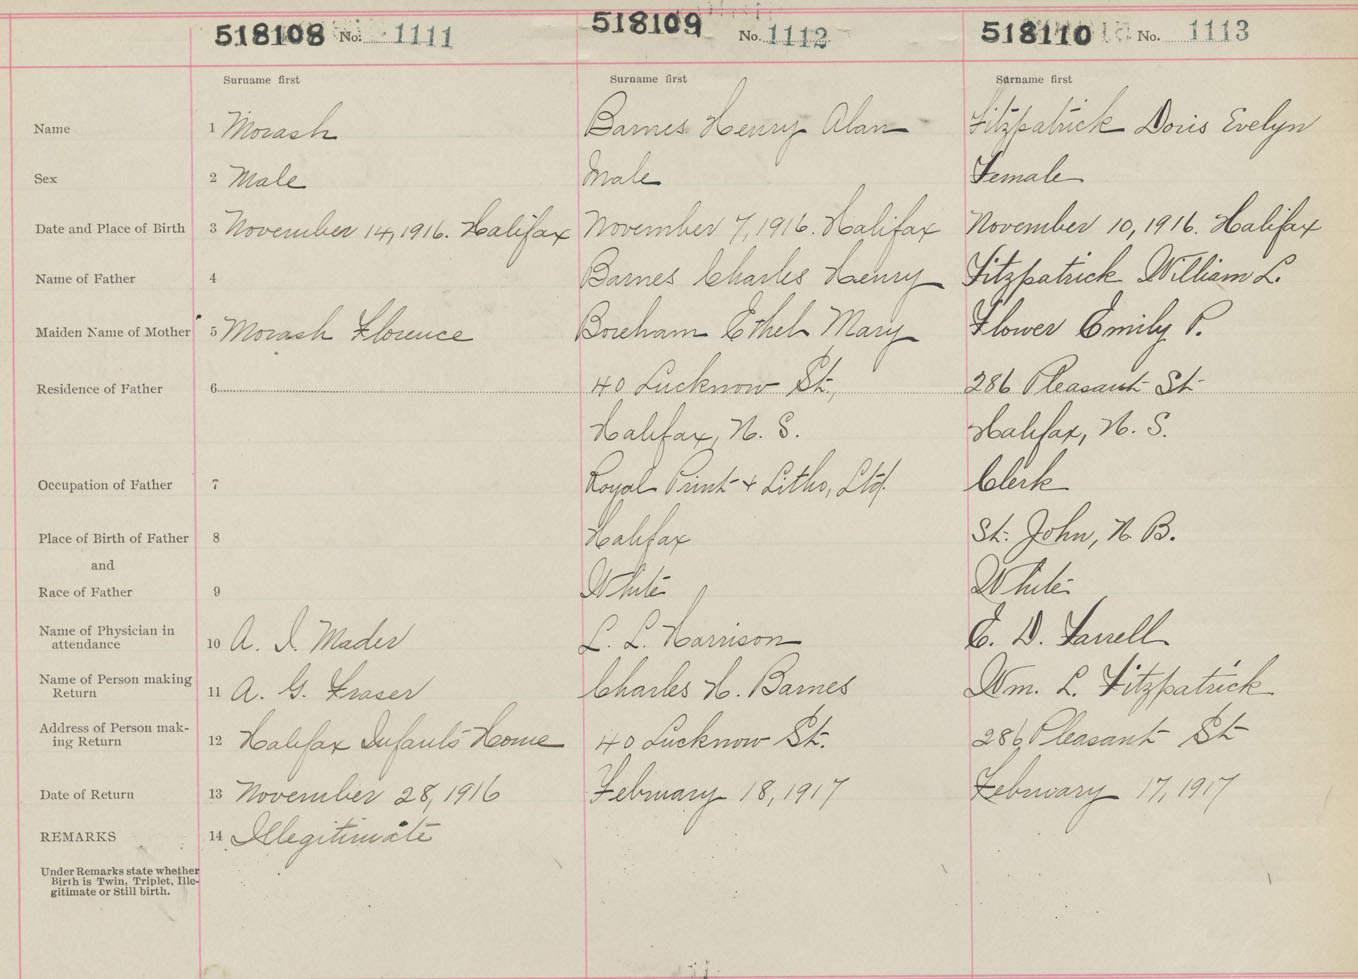 518108 No. 1111 518109 No. 1112 518110 No. 1113
Surname first Surname first Surname first
Name 1 Morash Barnes Henry Alan Fitzpatrick Doris Evelyn
Sex 2 Male Male Female
Date and Place of Birth 3 November 14, 1916. Halifax November 7, 1916. Halifax November 10, 1916. Halifax
Name of Father 4 Barnes Charles Henry Fitzpatrick William L.
Maiden Name of Mother 5 Morash Florence Boreham Ethel Mary Flower Emily P.
Residence of Father 6 40 Lucknow St., 286 Pleasant St
Halifax, N. S. Halifax, N. S.
Occupation of Father 7 Royal Print & Litho, Ltd. Clerk
Place of Birth of Father 8 Halifax St. John, N. B.
and
Race of Father 9 White White
Name of Physician in
attendance 10 A. I. Mader L. L. Harrison E. D. Farrell
Name of Person making
Return 11 A. G. Fraser Charles H. Barnes Wm. L. Fitzpatrick
Address of Person mak-
ing Return 12 Halifax Infants Home 40 Lucknow St. 286 Pleasant St
Date of Return 13 November 28, 1916 February 18, 1917 February 17, 1917
REMARKS 14 Illegitimate
Under Remarks state whether
Birth is Twin, Triplet, Ille-
gitimate or Still birth.